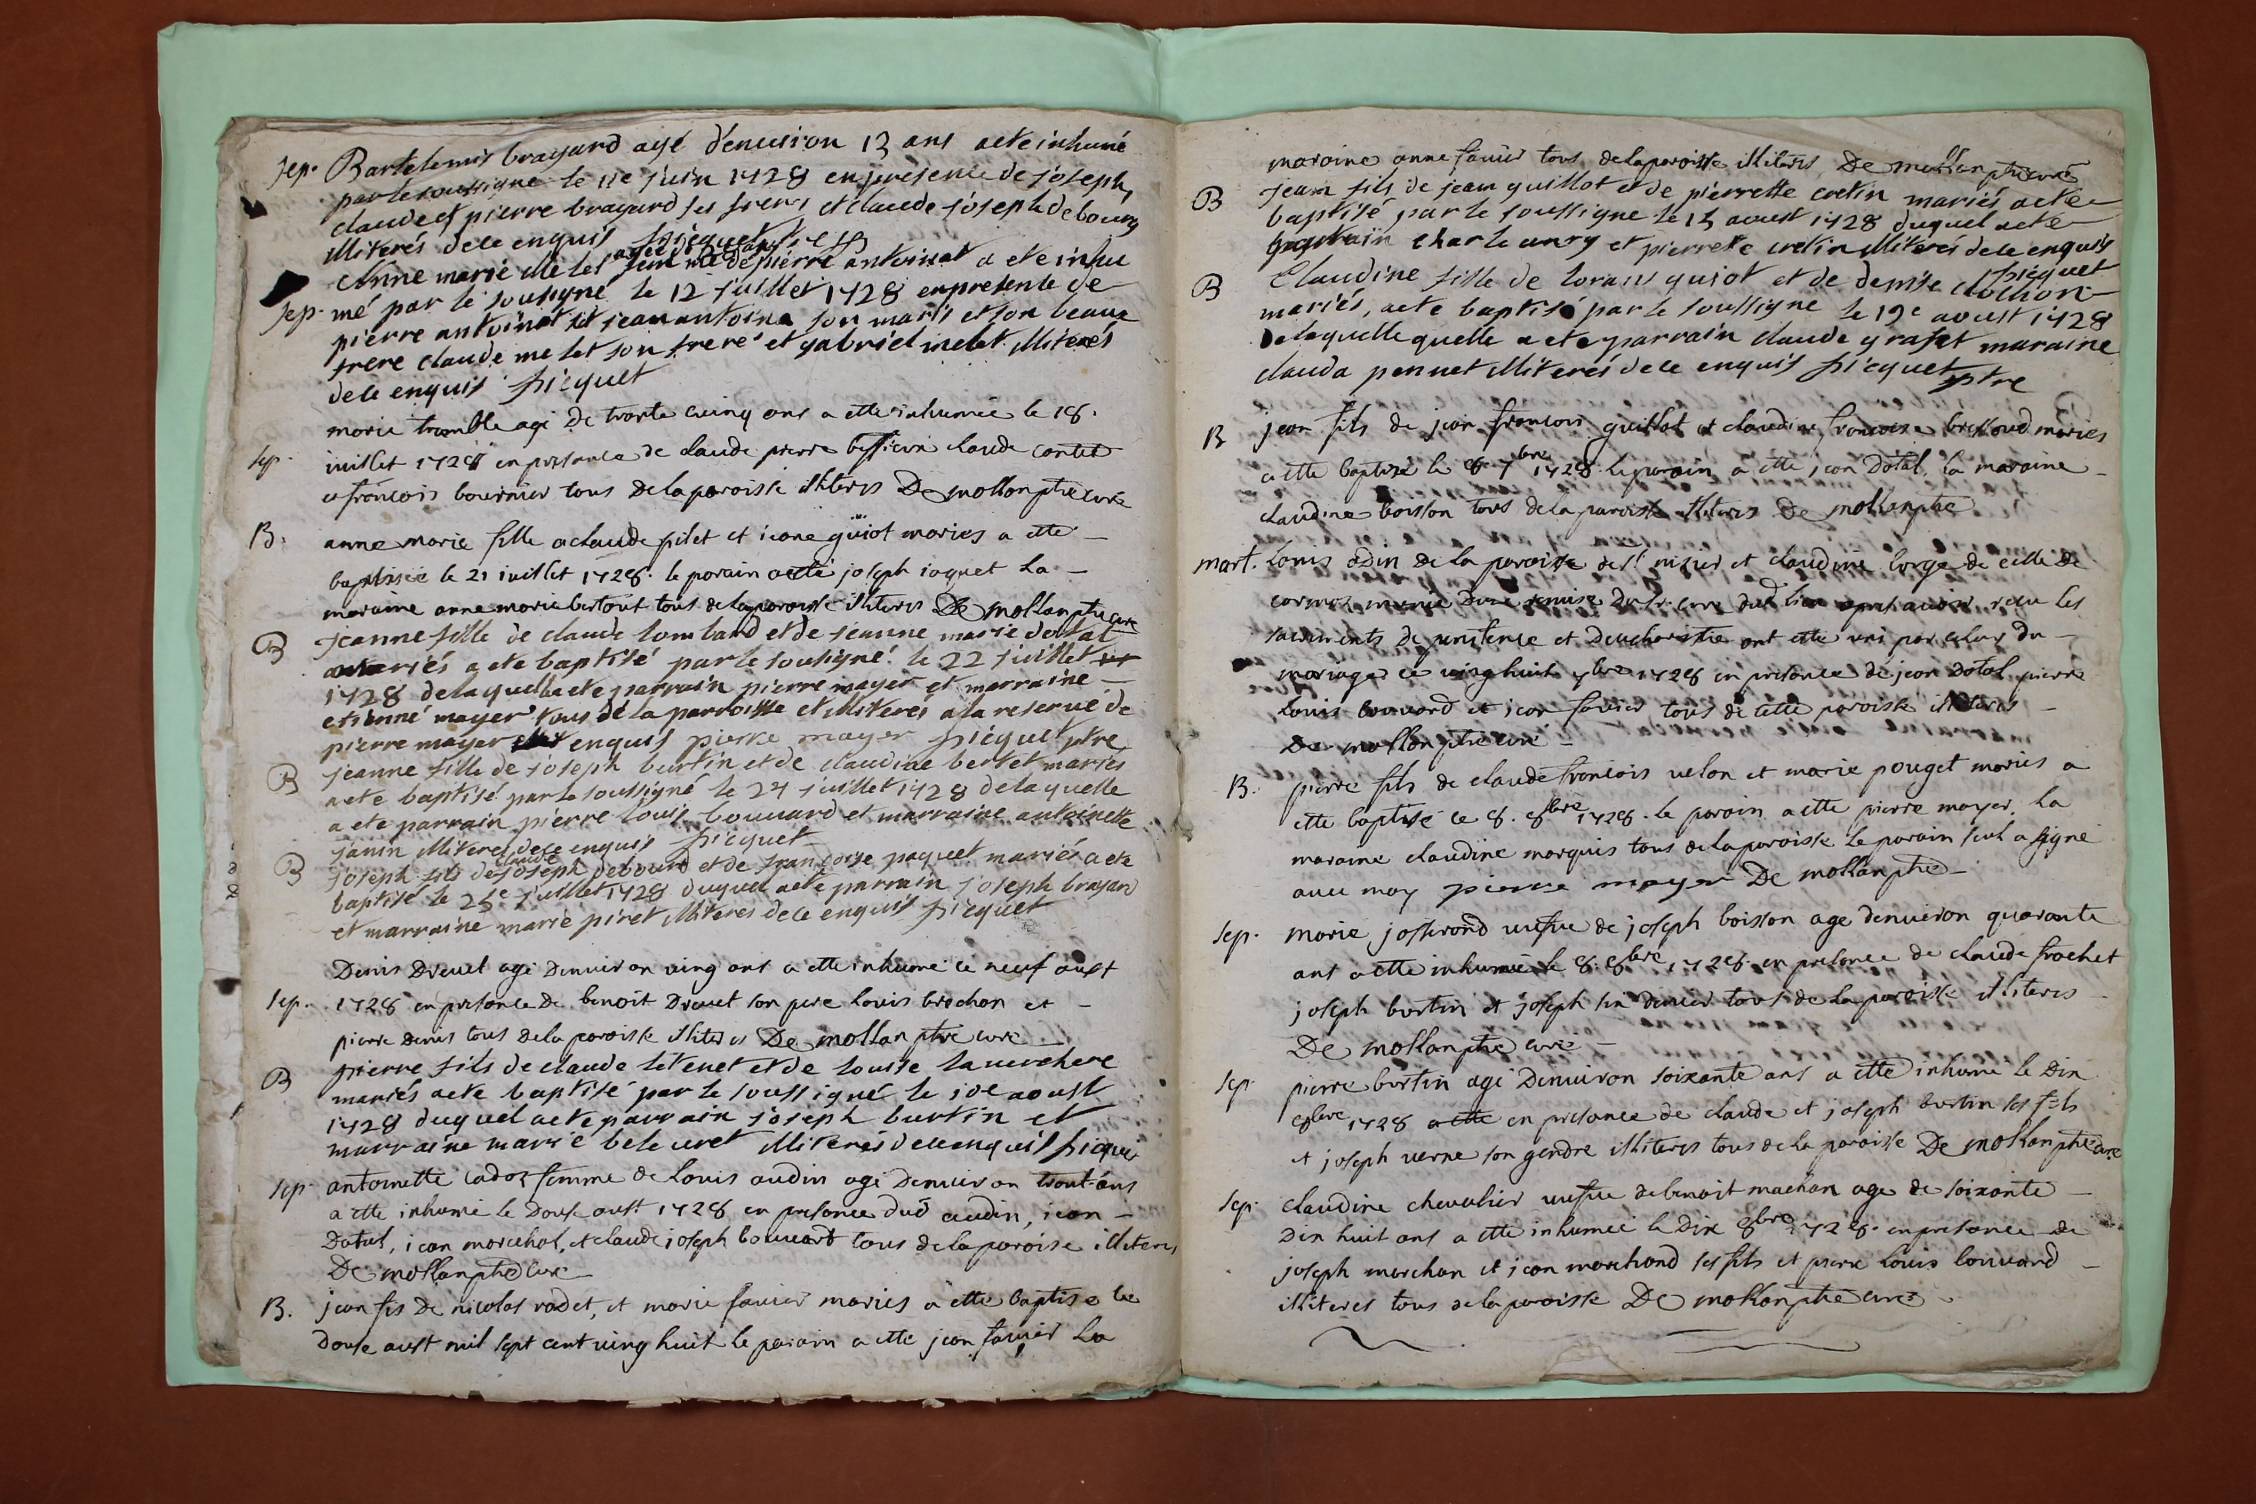 sep. Bartelemis brayard agé d'enuiron 13 ans aete inhumé
par le soussigné le 11e juin 1728 en présence de joseph,
claude et pierre brayard ses freres et claude joseph debourg
illiterés de ce enquis picquet ptre
anne marie melet agée femme de pierre antoinat a ete inhu
sep. mé par le sousigné le 12 juillet 1728 en presente de
pierre antoinat et jean antoina son maris et son beaux
frere claude melet son frere et gabriel melet illiterés
de ce enquis picquet
marie tramble agé De trante cuinq ans a ette inhumée le 18.
sep. iuillet 1728 en presance de claude pierre claude contet
et françois bournier tous De la paroisse illiteres De mollan ptre curé
B. anne marie fille a claude pilet et ieane guiot maries a ette
baptisée le 21 iuillet 1728. le parain a etté joseph iaquet La
maraine anne marie bertout tous de la paroisse illiteres De mollan ptre curé
B Jeanne fille de claude lombard et de jeanne marie dortal
mariés a ete baptisé par le sousigné le 22 juillet
1728 de laquelle a ete parrain pierre mayer et marraine
etienné mayer tous de la parroisse et illiteres a la reserve de
pierre mayer enquis pierre mayer picquet ptre
B jeanne fille de joseph burtin et de claudine berset mariés
a ete baptisé par le soussigné le 24 juillet 1728 de laquelle
a ete parrain pierre louis bouuard et marraine antoinette
janin illiteres de ce enquis picquet
B joseph fils de claude joseph debourd et de françoise paquet mariés a ete
baptisé le 25e juillet 1728 duquel a ete parrain joseph brayard
et marraine marie piret illiteres de ce enquis picquet
Denis Dreuet agé denuiron ving ans a ette inhume ce neuf aust
sep. 1728 en presance De benoit Dreuet son pere Louis brochon et
pierre denis tous de la paroisse illiteres De mollan ptre curé
B pierre fils de claude létenet et de louise lauerchere
mariés a ete baptisé par le soussigné le 10e aoust
1728 duquel a ete parrain joseph burtin et
marraine marie beleuret illiterés de ce enquis picquet
sep. antoinette cadoz femme de Louis audin agé denuiron trant ans
a ette inhumé le Douse aust 1728 en presance dud audin, iean
Datal, iean marechal, et claude joseph bouuard tous de la paroise illiteres
De mollan ptre curé
B. jean fis De nicolas radet, et marie fauier maries a ette baptise le
Douse aust mil sept cent uing huit le parain a ette jean fauier La
maraine anne fauier tous de la paroisse illiteres De mollan ptre curé
B Jean fils de jean guillot et de pierrette cretin mariés a ete
baptisé par le soussigne le 13 aoust 1728 duquel a ete
parrain charle unry et pierrete cretin illiteres de ce enquis
picquet
B Claudine fille de lorans guiot et de denise clochon
mariés, a ete baptisé par le soussigne le 19e aoust 1728
de laquelle quelle a ete parrain claude grafet maraine
clauda pennet illiterés de ce enquis picquet ptre
B jean fils de jean francois guillot et claudine francoise bressoud maries
a ette baptise le 8. 7bre 1728 le parain a ette jean Dotal la maraine
claudine boisson tous de la paroisse illiteres De mollan ptre
mart. Louis odin de la paroisse de st nisier et claudine lorge de celle de
cormos munie Dune remise du sr cure dud lieu apres auoir receu les
sacrements de penitence et Deucharistie ont ette uni par celuy du
mariage ce uing huit 7bre 1728 en presance de jean Dotal pierre
Louis bouuard et jean fauier tous de cette paroisse illiteres
De mollan ptre curé
B. pierre fils de claude francois uelon et marie pouget maries a
ette baptisé ce 8. 8bre 1728. le parain a ette pierre mayer, La
maraine claudine marquis tous de la paroisse le parain seul a signé
auec moy pierre mayer De mollan ptre
sep. marie josserand uefue de joseph boisson age denuiron quarante
ans a ette inhumée le 8. 8bre 1728. en presance de claude frochet
joseph burtin et joseph tous de la paroisse illiteres
De mollan ptre curé
sep. pierre burtin agé Denuiron soixante ans a ette inhumé le Dix
8bre 1728 a ette en presance de claude et joseph burtin ses fils
et joseph uerne son gendre illiteres tous de la paroisse De mollan ptre curé
sep. claudine cheualier uefue de benoit machan age de soixante
Dix huit ans a ette inhumée le Dix 8bre 1728. en presance De
joseph marchan et jean marchand ses fils et pierre Louis bouuard
illiteres tous de la paroisse De mollan ptre curé